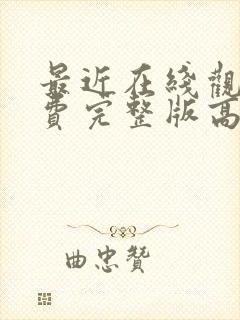 最近在线觀
費完整版高
曲忠贊